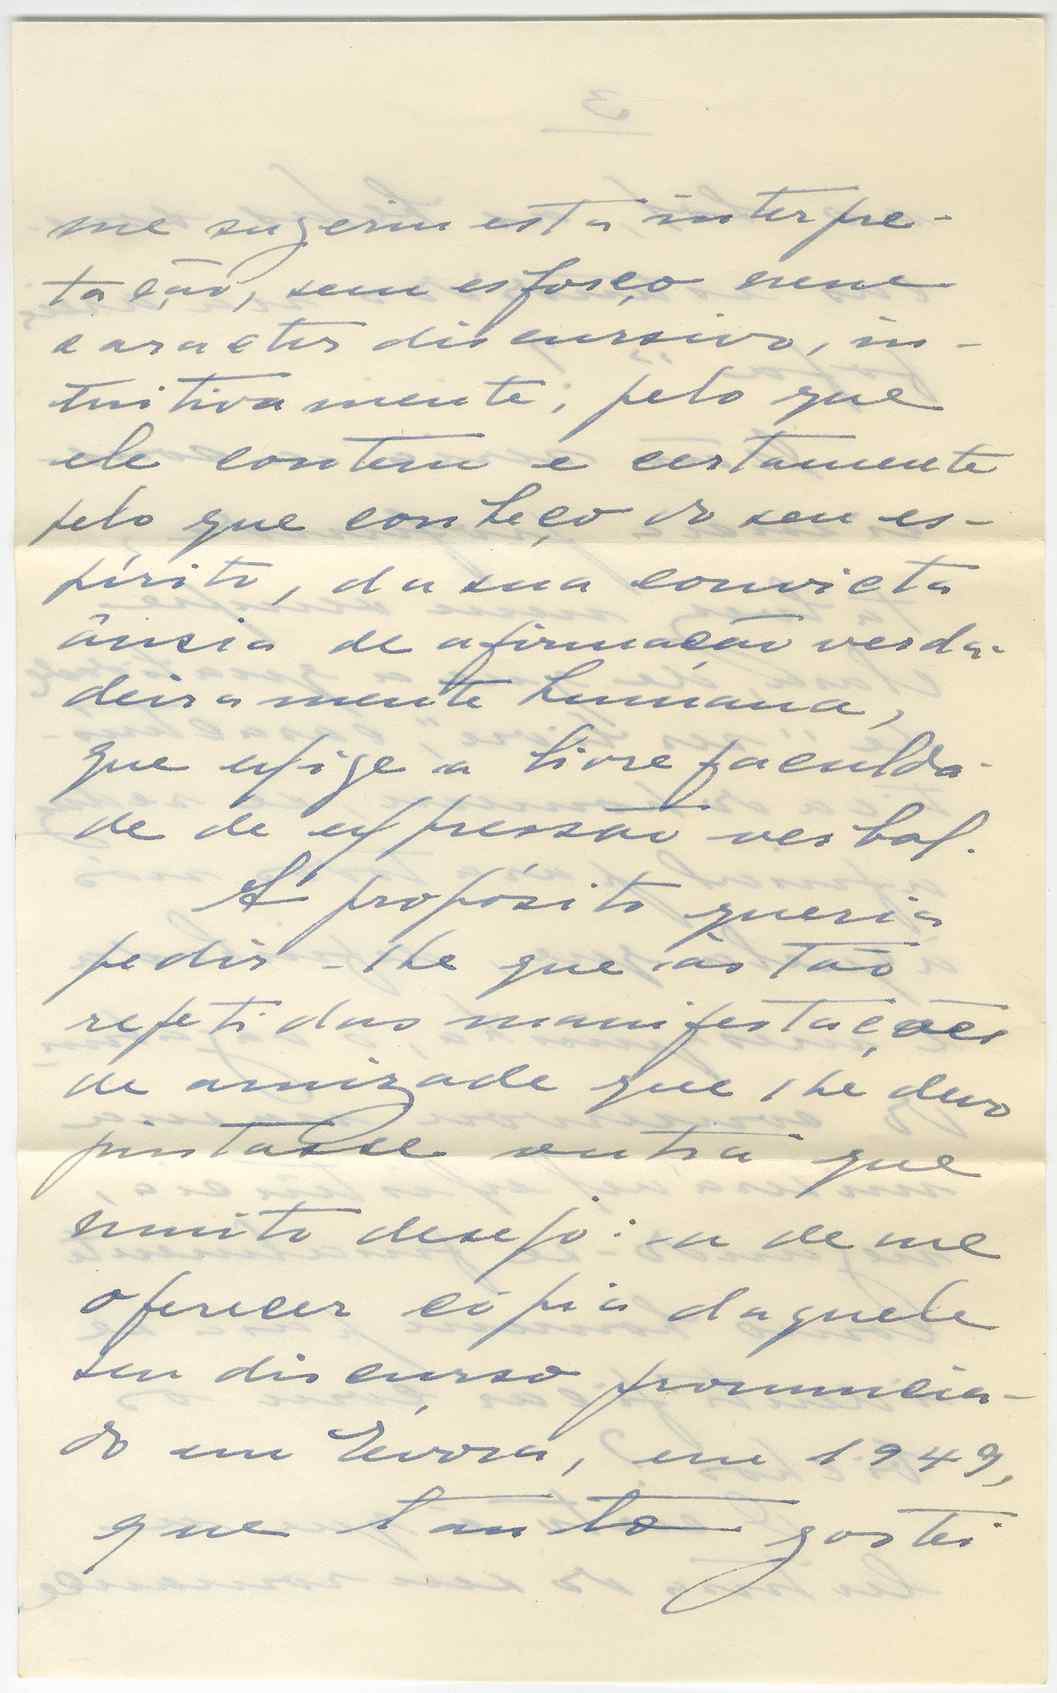 me sugeriu esta interpre-
tação, sem esforço nem
caracter discursivo, in-
tuitivamente, pelo que
ele contem e certamente
pelo que conheço do seu es-
pírito, da sua convicta
ânsia de afirmação verda-
deiramente humana,
que exige a livre faculda-
de de expressão verbal.
A propósito queria
pedir-lhe que às tão
repetidas manifestações
de amizade que lhe devo
juntasse outra que
muito desejo: a de me
oferecer cópia daquele
seu discurso pronuncia-
do em Évora, em 1949,
que tanto gostei